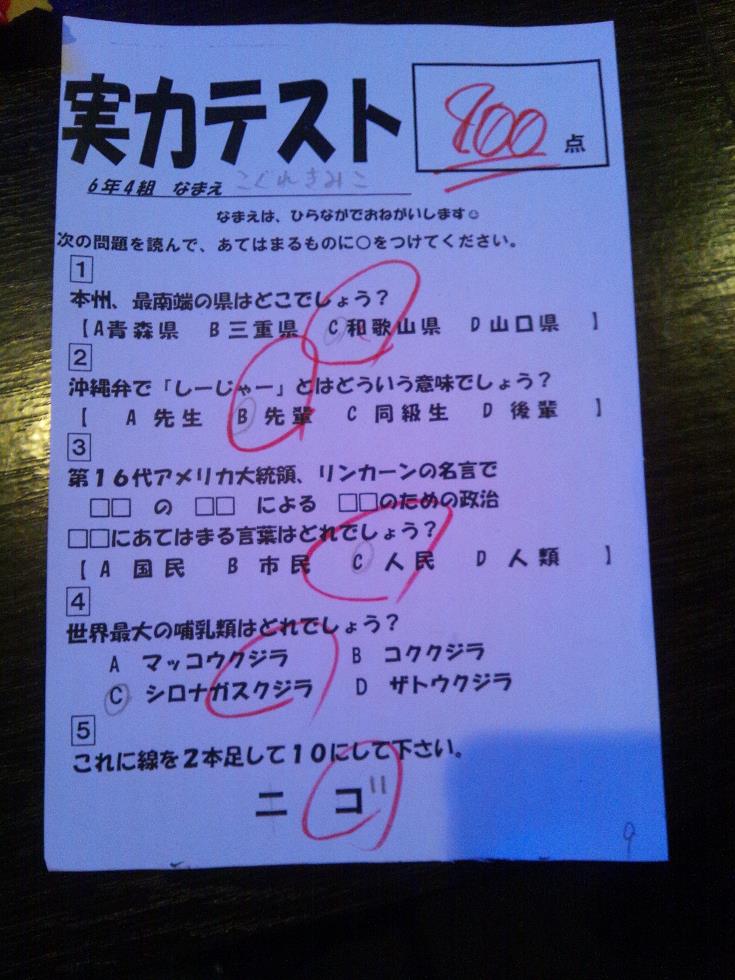 実力テスト
100 点
6年4組 なまえ こぐれきみこ
なまえは、ひらながでおねがいします☺
次の問題を読んで、あてはまるものに○をつけてください。
1
本州、最南端の県はどこでしょう？
【A青森県 B三重県 C和歌山県 D山口県 】
2
沖縄弁で「しーじゃー」とはどういう意味でしょう？
【 A 先生 B 先輩 C 同級生 D 後輩 】
3
第１６代アメリカ大統領、リンカーンの名言で
□□ の □□ による □□のための政治
□□にあてはまる言葉はどれでしょう？
【 A 国民 B 市民 C 人民 D 人類 】
4
世界最大の哺乳類はどれでしょう？
A マッコウクジラ B コククジラ
C シロナガスクジラ D ザトウクジラ
5
これに線を２本足して１０にして下さい。
ニ コ"
9